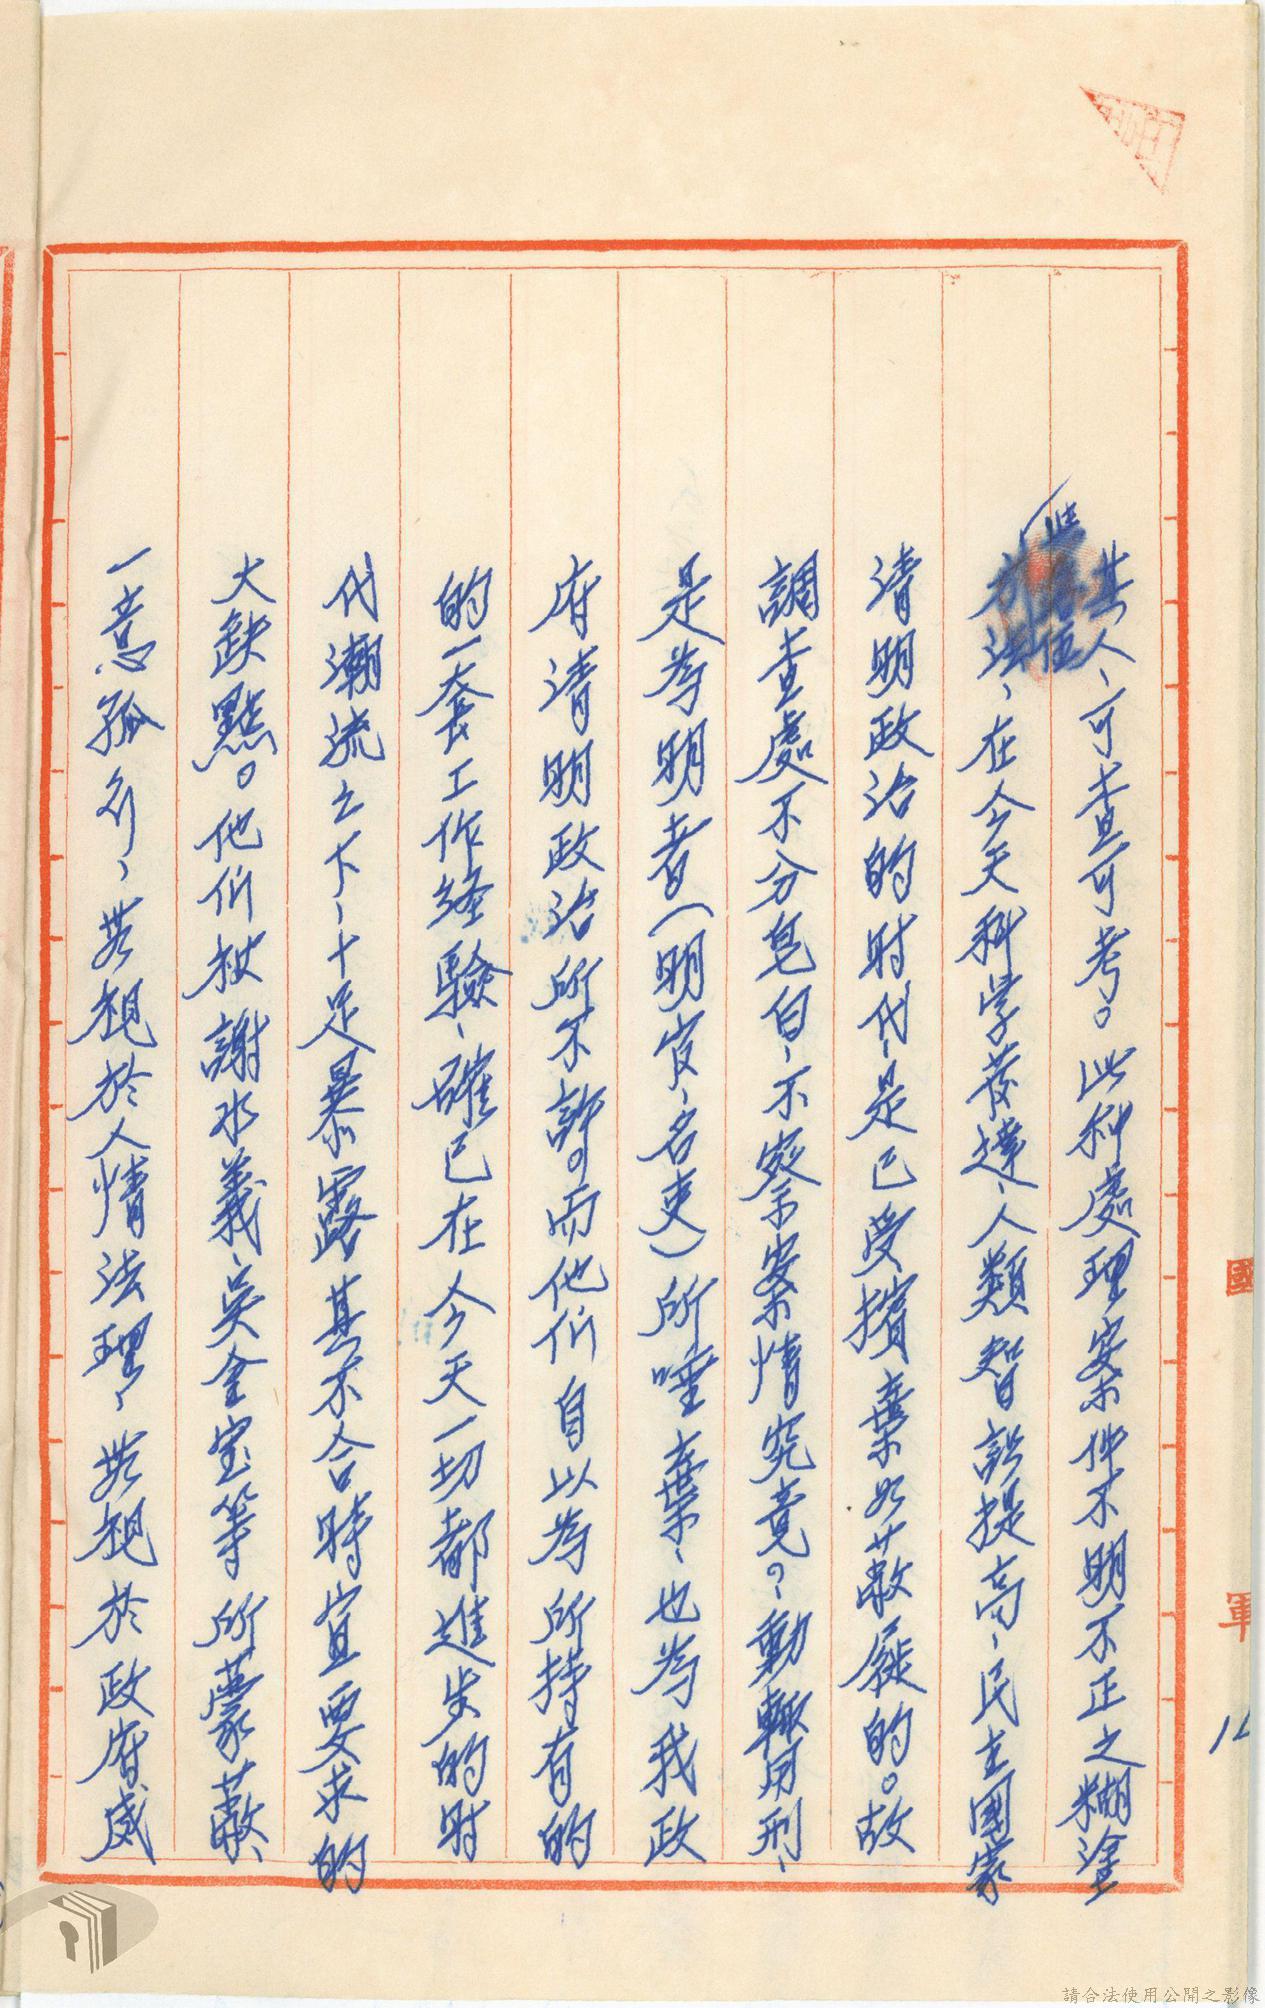 其人、可查可考。此种處理案件不明不正之糊塗
方法、在今天科学發達、人類智識提高、民主國家
清明政治的时代、是已受擯棄如蔽屣的。故
調查處不分皂白、不察案情究竟？動輒用刑、
是為明者（明官、名吏）所唾棄、也為我政
府清明政治所不許。而他们自以為所持有的
的一套工作经驗、確已在今天一切都進步的时
代潮流之下、十足暴露其不合時宜要求的
大缺點。他们被謝水義、吳金宝等所蒙蔽、
一意孤行、無視於人情法理、無視於政府威
國
軍
請合法使用公開之影像